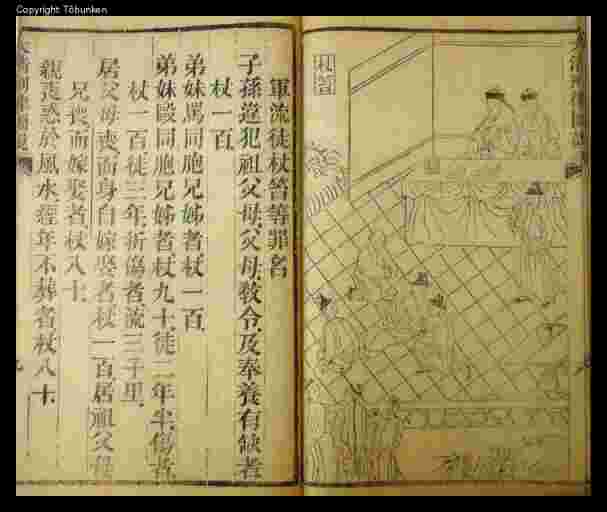 Copyright Tōbunken
大清刑律圖說
軍流徒杖笞等罪名
子孫違犯祖父母父母教令及奉養有缺者
杖一百
弟妹罵同胞兄姊者杖一百
弟妹毆同胞兄姊者杖九十徒二年半傷者
杖一百徒三年折傷者流三千里
居父母喪而身自嫁娶者杖一百居祖父母
兄喪而嫁娶者杖八十
親喪惑於風水經年不葬者杖八十
大清刑律圖說
九